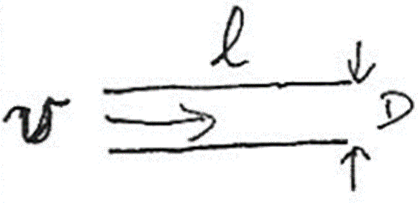 l
v
D